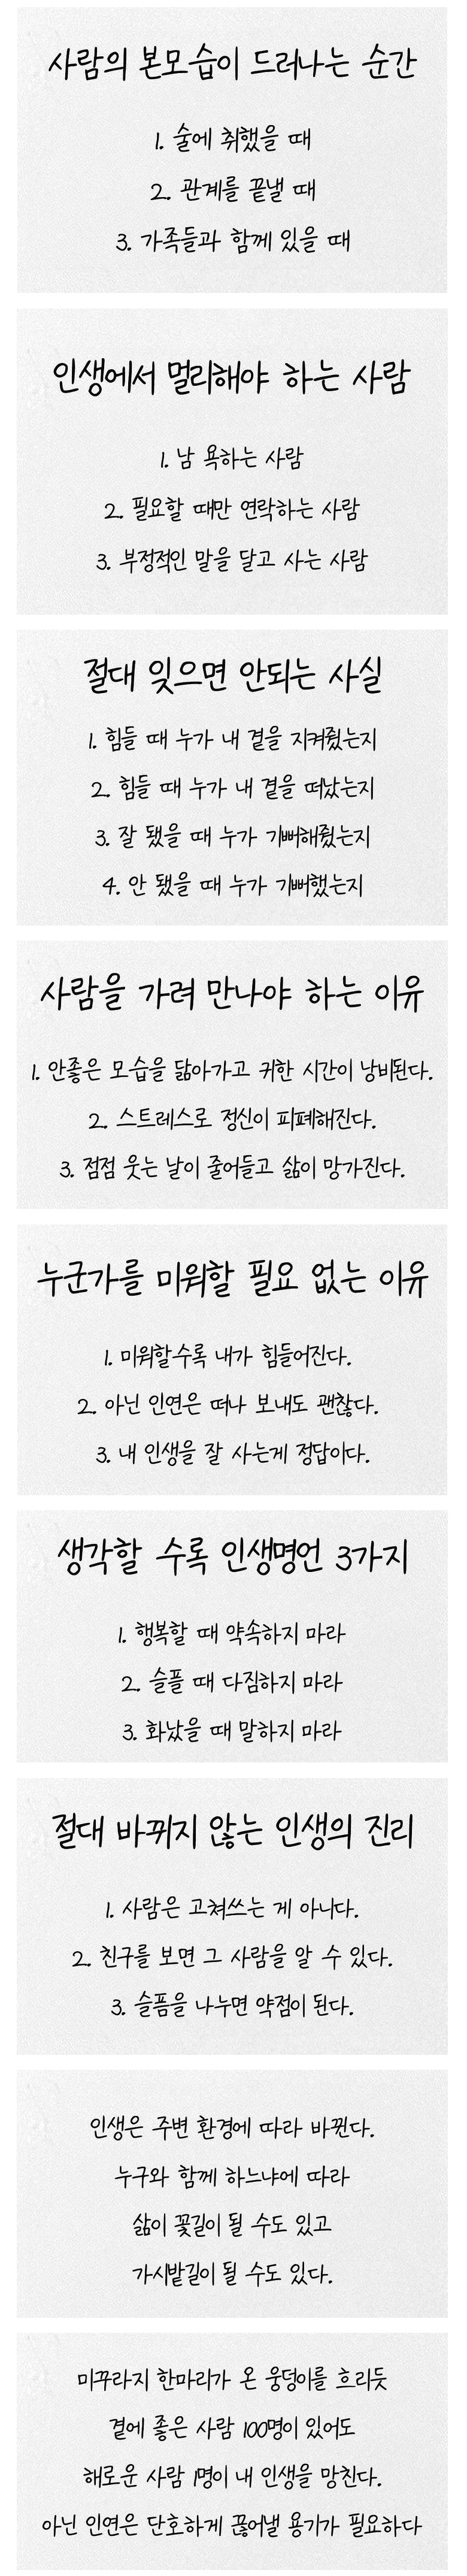 사람의 본모습이 드러나는 순간
1. 술에 취했을 때
2. 관계를 끝낼 때
3. 가족들과 함께 있을 때
인생에서 멀리해야 하는 사람
1. 남 욕하는 사람
2. 필요할 때만 연락하는 사람
3. 부정적인 말을 달고 사는 사람
절대 잊으면 안되는 사실
1. 힘들 때 누가 내 곁을 지켜줬는지
2. 힘들 때 누가 내 곁을 떠났는지
3. 잘 됐을 때 누가 기뻐해줬는지
4. 안 됐을 때 누가 기뻐했는지
사람을 가려 만나야 하는 이유
1. 안좋은 모습을 닮아가고 귀한 시간이 낭비된다.
2. 스트레스로 정신이 피폐해진다.
3. 점점 웃는 날이 줄어들고 삶이 망가진다.
누군가를 미워할 필요 없는 이유
1. 미워할수록 내가 힘들어진다.
2. 아닌 인연은 떠나 보내도 괜찮다.
3. 내 인생을 잘 사는게 정답이다.
생각할 수록 인생명언 3가지
1. 행복할 때 약속하지 마라
2. 슬플 때 다짐하지 마라
3. 화났을 때 말하지 마라
절대 바뀌지 않는 인생의 진리
1. 사람은 고쳐쓰는 게 아니다.
2. 친구를 보면 그 사람을 알 수 있다.
3. 슬픔을 나누면 약점이 된다.
인생은 주변 환경에 따라 바뀐다.
누구와 함께 하느냐에 따라
삶이 꽃길이 될 수도 있고
가시밭길이 될 수도 있다.
미꾸라지 한마리가 온 웅덩이를 흐리듯
곁에 좋은 사람 100명이 있어도
해로운 사람 1명이 내 인생을 망친다.
아닌 인연은 단호하게 끊어낼 용기가 필요하다